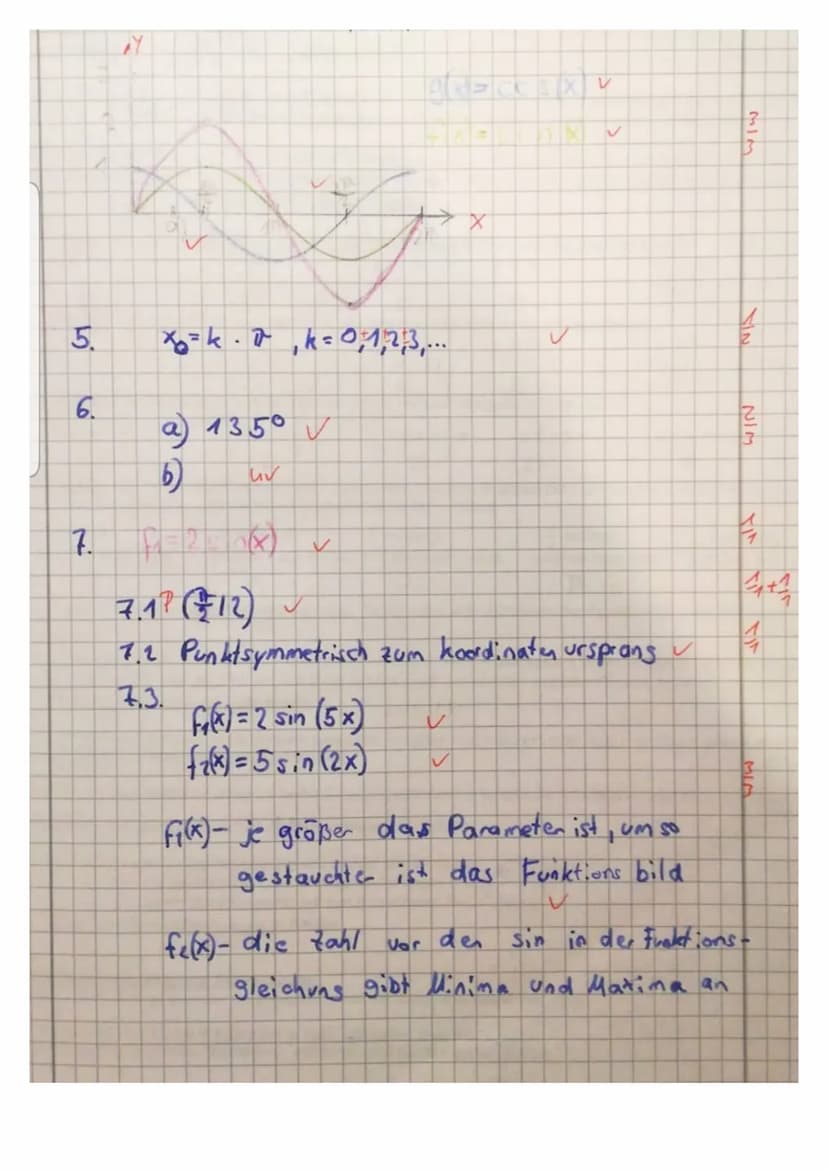 Y
g(x)= cos(x)
X
3/3
5. x₀=k · π , k = 0,±1,±2,±3,...
1/2
6.
a) 135°
2/3
b) uv
7. f₁=2 sin(x)
1/1
7.1 P (π/2|2)
1/1+1/1
7.2 Punktsymmetrisch zum koordinaten ursprung
1/1
7.3.
f₁(x)=2 sin (5x)
f₂(x)=5 sin(2x)
3/3
f₁(x)- je größer das Parameter ist, um so
gestauchter ist das Funktions bild
f₂(x)- die Zahl vor den sin in der Funktions-
gleichung gibt Minima und Maxima an